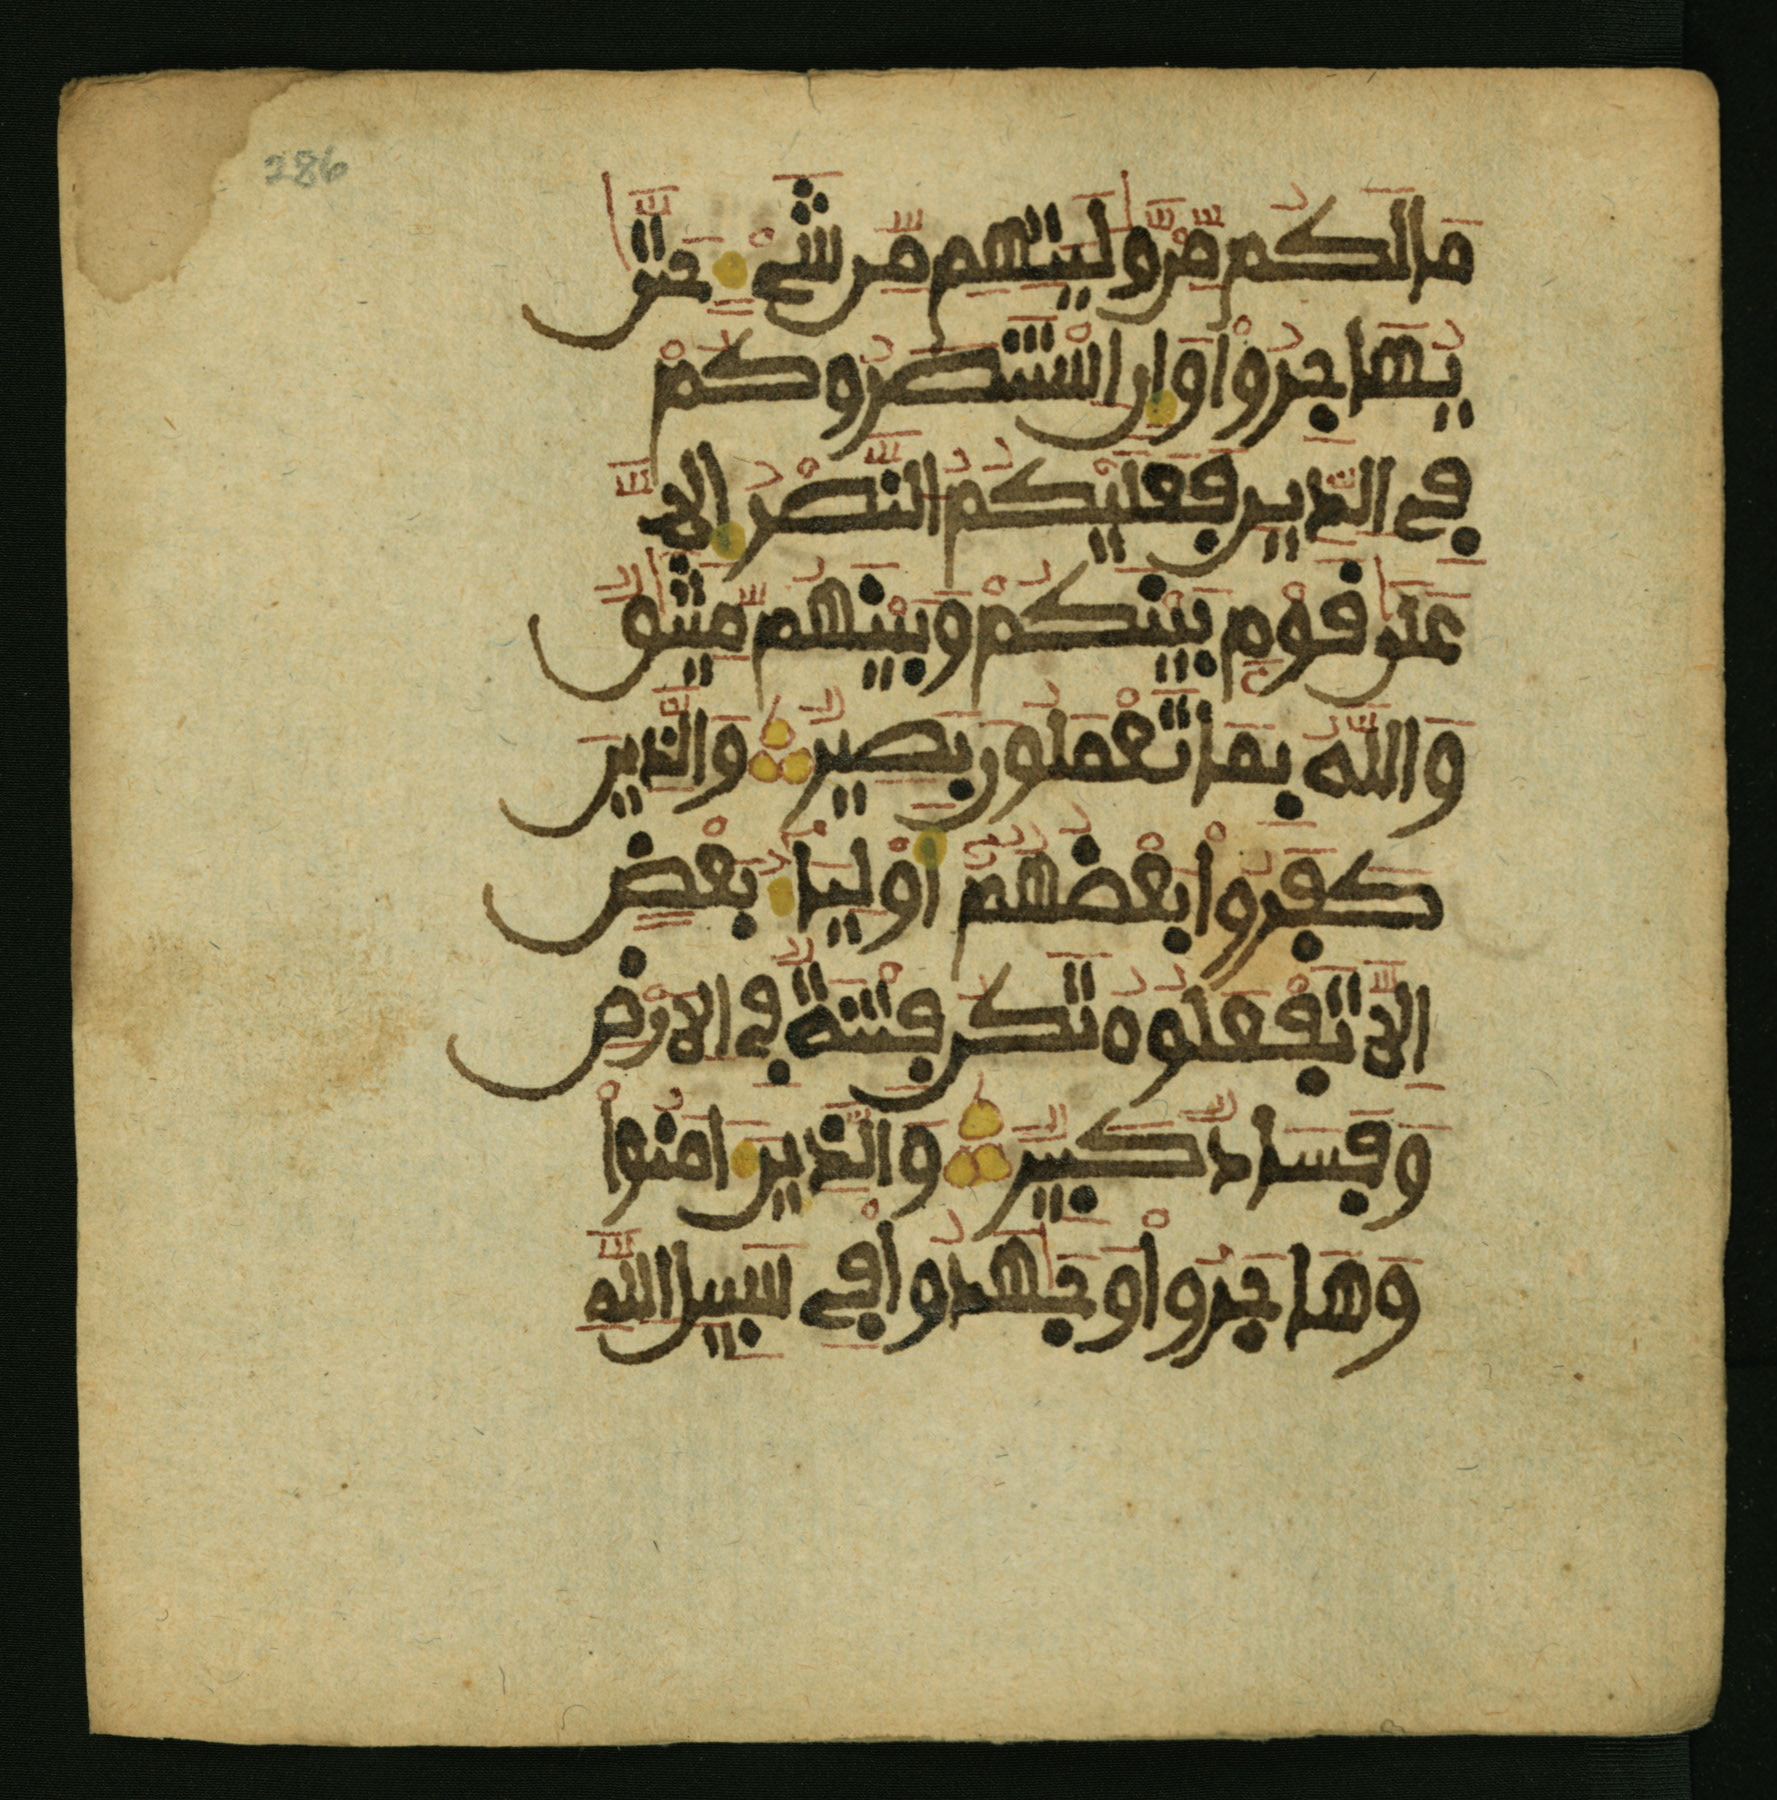 286
مَا لَكُم مِّنْ وَّلَٰيَتِهِم مِّن شَيْءٍ حَتَّىٰ
يُهَاجِرُواْ وَإِنِ اسْتَنصَرُوكُمْ
فِي الدِّينِ فَعَلَيْكُمُ النَّصْرُ إِلاَّ
عَلَىٰ قَوْمٍ بَيْنَكُمْ وَبَيْنَهُم مِّيثَٰقٌ
وَاللَّهُ بِمَا تَعْمَلُونَ بَصِيرٌ وَالَّذِينَ
كَفَرُواْ بَعْضُهُمُۥٓ أَوْلِيَاءُ بَعْضٍ
إِلاَّ تَفْعَلُوهُ تَكُن فِتْنَةٌ فِي الاَرْضِ
وَفَسَادٌ كَبِيرٌ وَالَّذِينَ ءَامَنُواْ
وَهَاجَرُواْ وَجَٰهَدُواْ فِي سَبِيلِ اللَّهِ